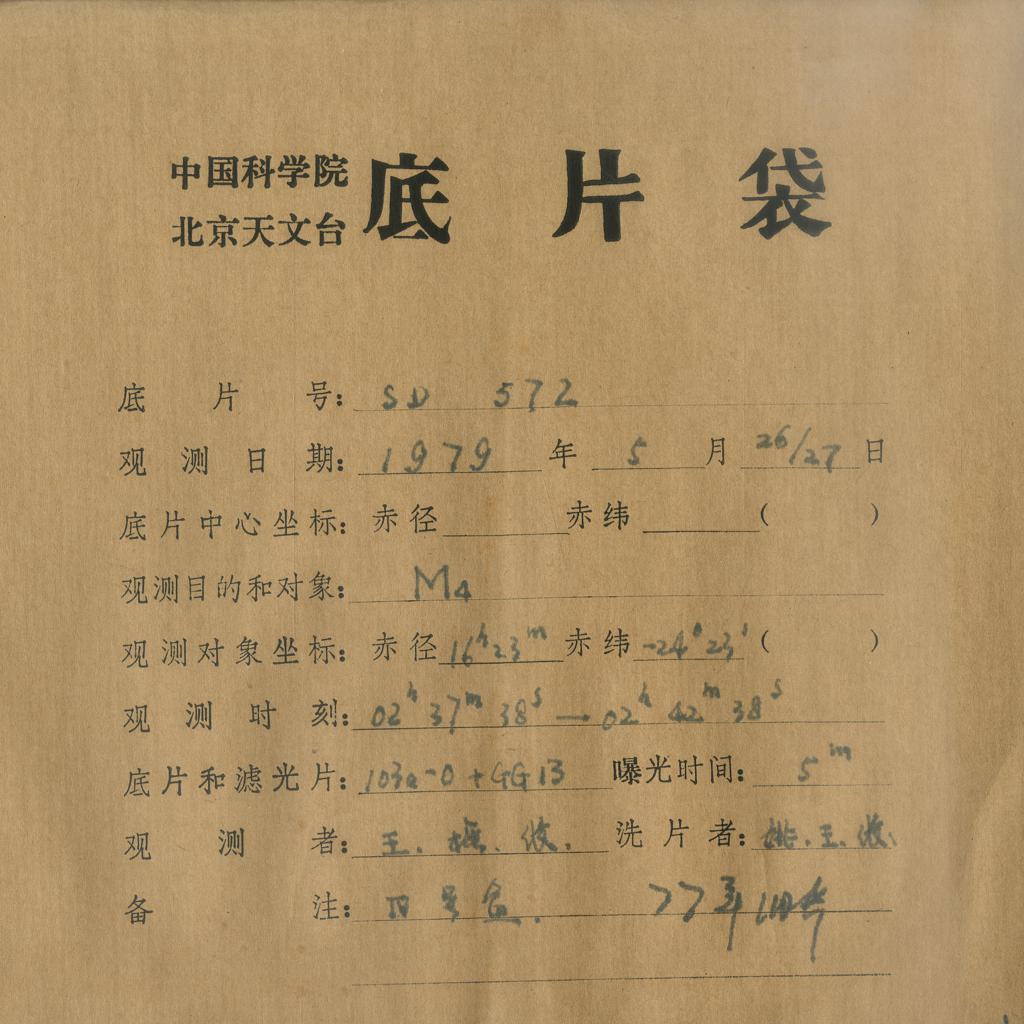 中国科学院
北京天文台
底片袋
底片号：SD 572
观测日期：1979年5月26/27日
底片中心坐标：赤径 赤纬 （ ）
观测目的和对象：M4
观测对象坐标：赤径16ʰ23ᵐ赤纬-24°23′（ ）
观测时刻：02ʰ37ᵐ38ˢ→02ʰ42ᵐ38ˢ
底片和滤光片：103a-O+GG13 曝光时间：5ᵐ
观测者：王. 洗片者：王.
备注：四号盒. 77年